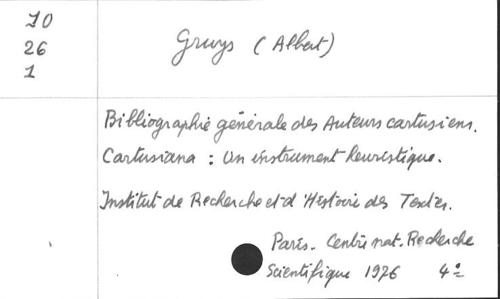 10
26
1
Gruys (Albert)
Bibliographie générale des Auteurs cartusiens.
Cartusiana : Un instrument heuristique.
Institut de Recherche et d'Histoire des Textes.
Paris. Centre nat. Recherche
Scientifique 1976 4º